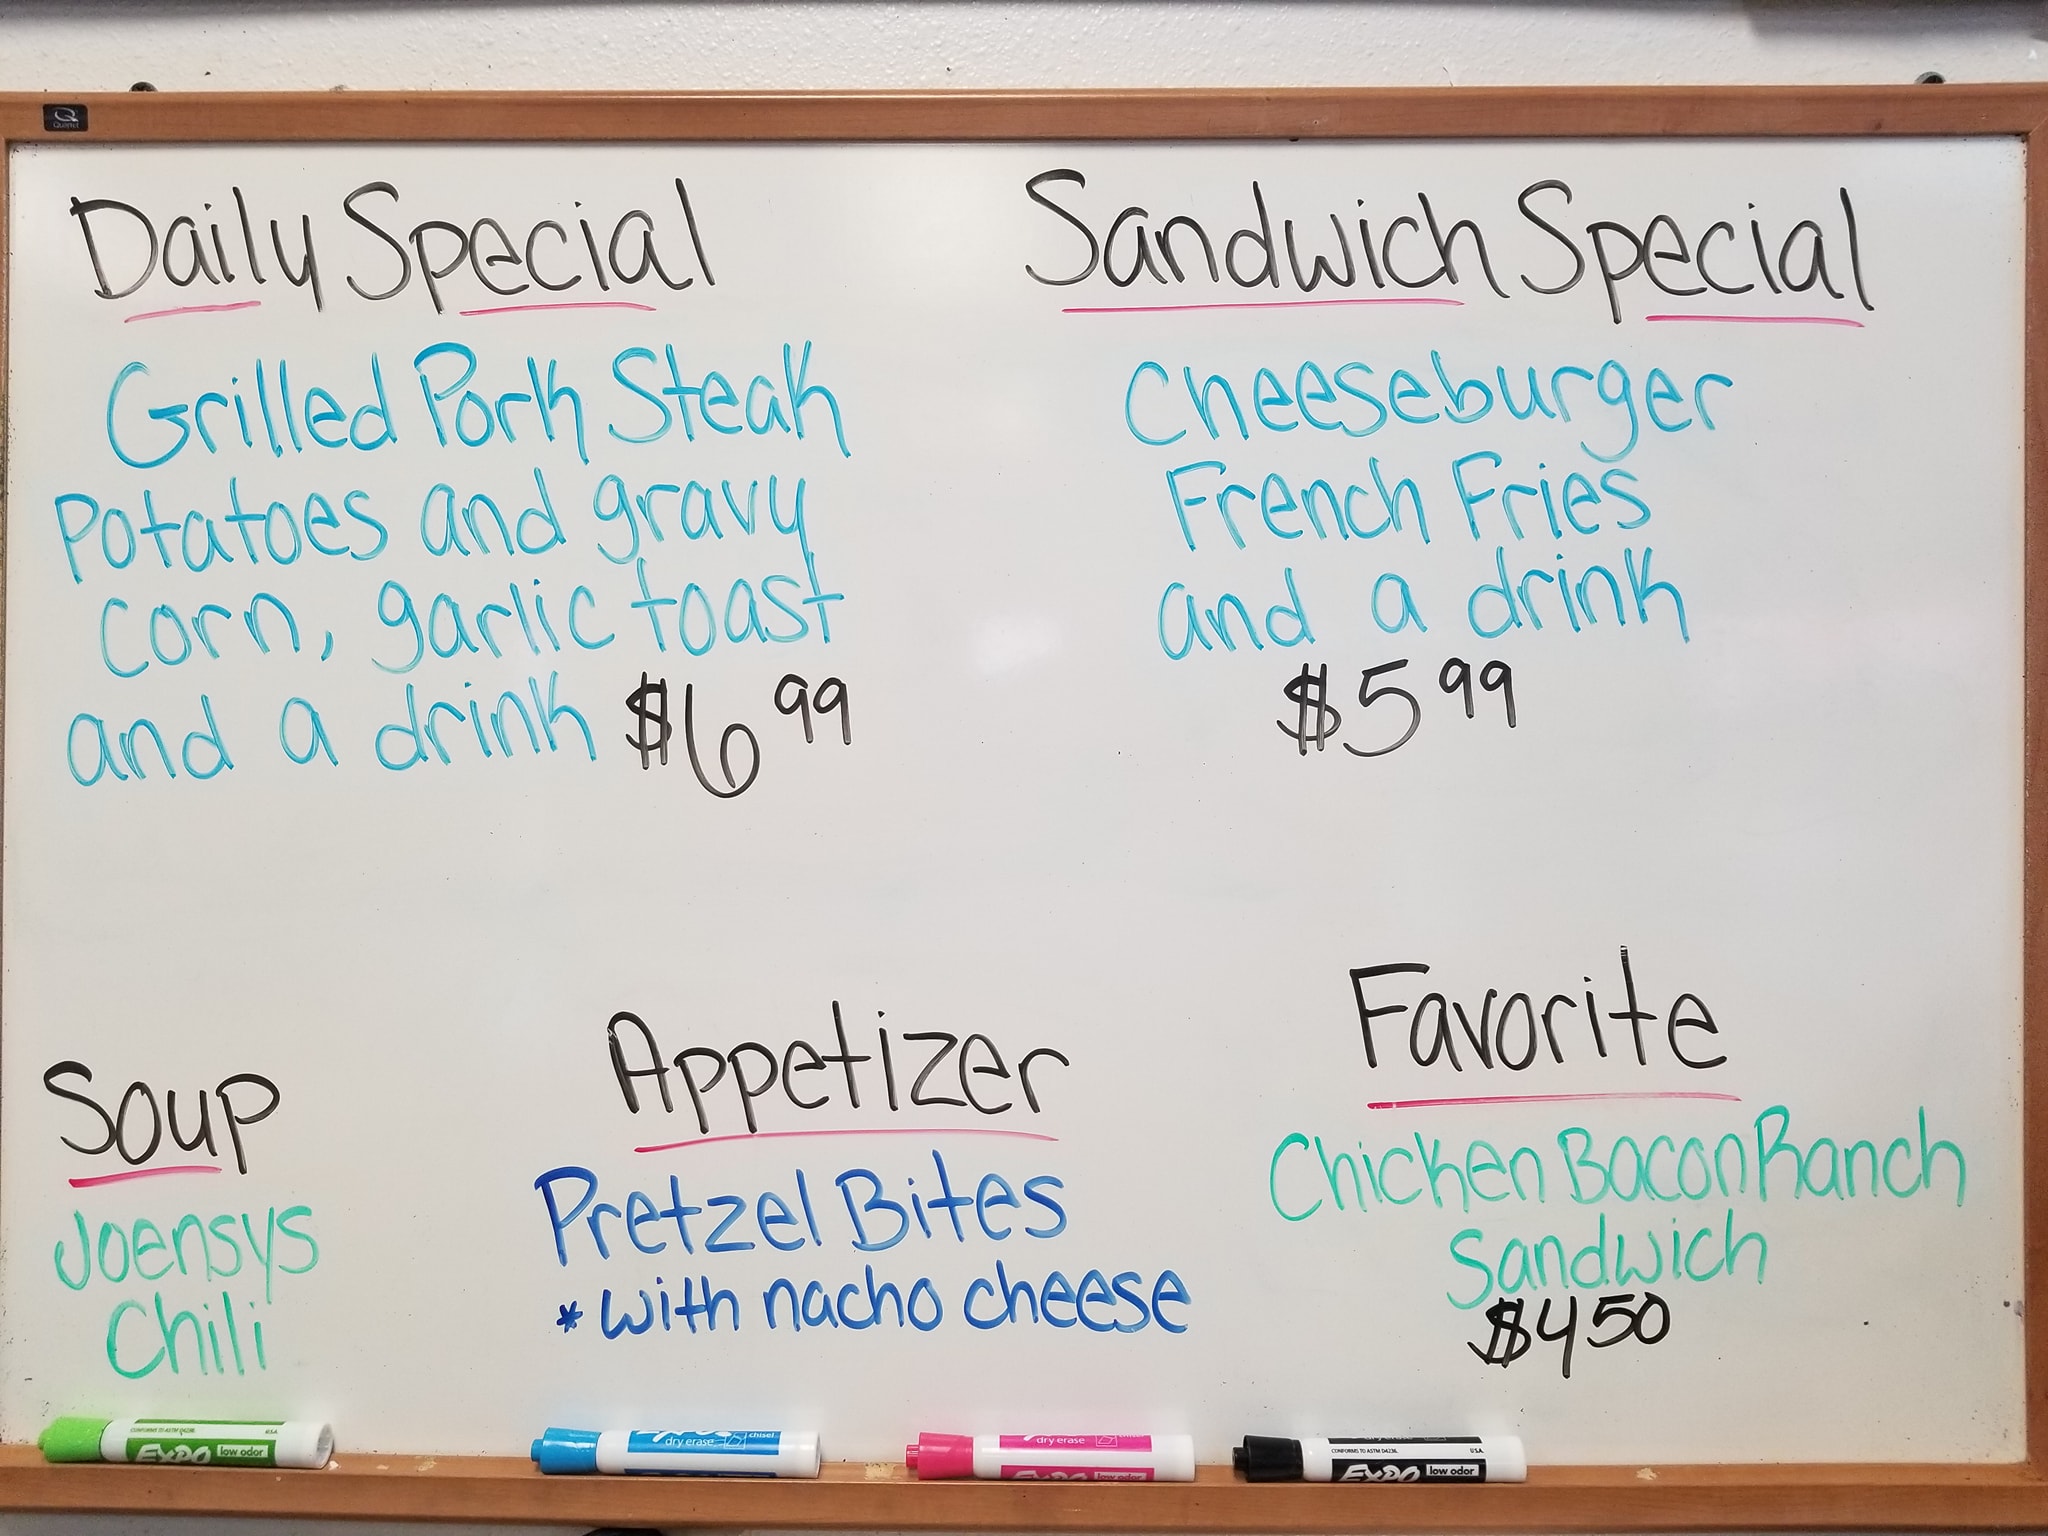 Quartet
Daily Special
Grilled Pork Steak
Potatoes and gravy
corn, garlic toast
and a drink $6 99
Sandwich Special
Cheeseburger
French Fries
and a drink
$5 99
Soup
Joensys
Chili
Appetizer
Pretzel Bites
* with nacho cheese
Favorite
Chicken Bacon Ranch
Sandwich
$4 50
CONFORMS TO ASTM D4236 USA
EXPO low odor
dry erase chisel
dry erase
EXPO low odor
CONFORMS TO ASTM D4236 USA
EXPO low odor